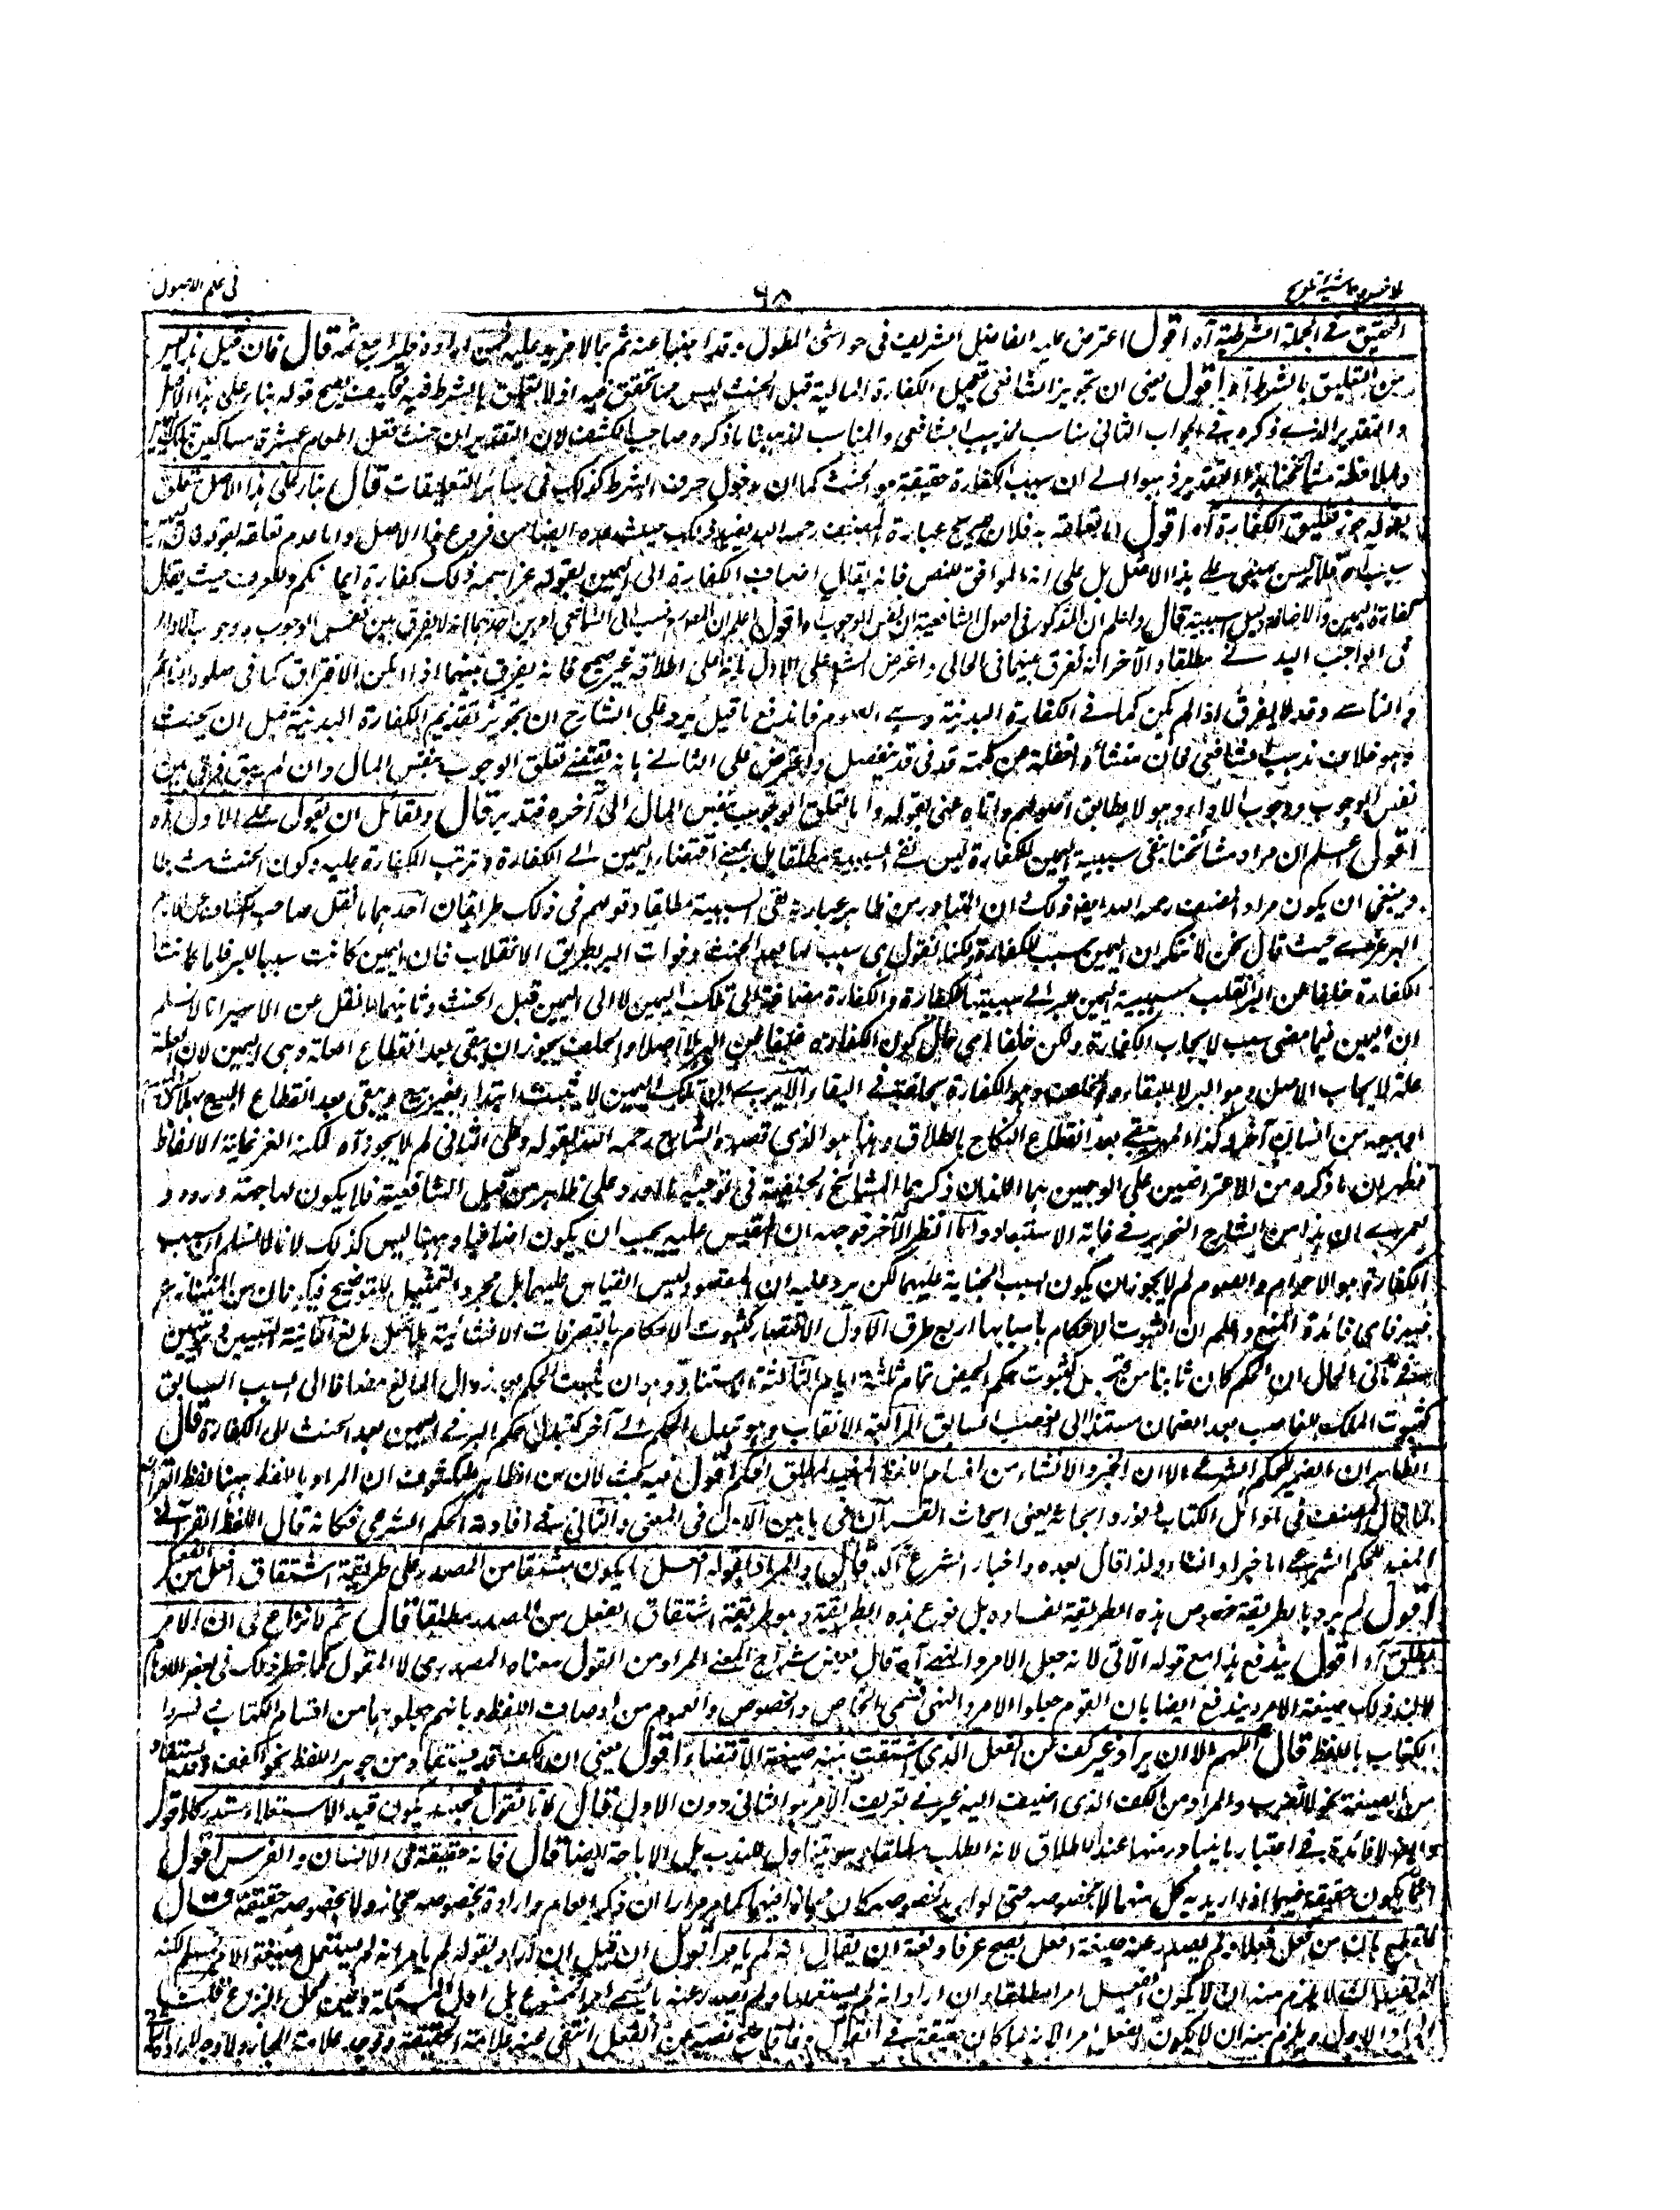 ملا خسرو حاشية تلويح
٦٨
فى علم الاصول
التحقيق فى الجملة الشرطية آه اقول اعترض عليه الفاضل الشريف فى حواشى المطول وقد اجبنا عنه ثم بما لا مزيد عليه فمن اراده فليراجع ثمه قال فان قيل هذا ليس
من التعليق بالشرط آه اقول يعنى ان تجويز الشافعى تعجيل الكفارة المالية قبل الحنث ليس مما نحن فيه اذ لا تعليق بالشرط فيه فكيف يصح قوله بناء على هذا الاصل
والتقدير الذى ذكره فى الجواب الثانى يناسب مذهب الشافعى والمناسب لمذهبنا ما ذكره صاحب الكشف لان التقدير ان حنث فعليه اطعام عشرة مساكين
ولملاحظة مشائخنا هذا التقدير ذهبوا الى ان سبب الكفارة حقيقة هو الحنث كما ان دخول حرف الشرط كذلك فى سائر التعليقات قال بناء على هذا الاصل متعلق
بقوله جوز تعليق الكفارة آه اقول اما تعلقه به فلان صريح عبارة المصنف رحمه الله يفيد ذلك حيث عده ايضا من فروع هذا الاصل واما عدم تعلقه بقوله فان
سبب آه فلانه ليس بمبنى على هذا الاصل بل على انه الموافق للنص فانه يقال اضاف الكفارة الى اليمين بقوله عز اسمه ذلك كفارة ايمانكم وللعرف حيث يقال
كفارة اليمين والاضافة دليل السببية قال واعلم ان المذكور فى اصول الشافعية ان نفس الوجوب آه اقول اعلم ان القوم نسبوا الى الشافعى امرين احدهما انه لا يفرق بين نفس الوجوب ووجوب الاداء
فى الواجب البدنى مطلقا والآخر انه يفرق بينهما فى المالى واعترض الشارح على الاول بانه على اطلاقه غير صحيح فانه يفرق بينهما اذا امكن الافتراق كما فى صلوة النائم
والناسى وقد لا يفرق اذا لم يمكن كما فى الكفارة البدنية وهى الصوم فاندفع ما قيل يرد على الشارح ان تجويز تقديم الكفارة البدنية قبل ان يحنث
وهو خلاف مذهب الشافعى فان منشأه الغفلة عن كلمة قد فى قد ينفصل واعترض على الثانى بانه يقتضى تعلق الوجوب بنفس المال وان لم يبق فرق بين
نفس الوجوب ووجوب الاداء وهو لا يطابق اصولهم واتاه عنى بقوله واما تعلق الوجوب بنفس المال الى آخره فتدبر قال ولقائل ان يقول على الاول آه
اقول اعلم ان مراد مشائخنا بنفى سببية اليمين للكفارة ليس نفى السببية مطلقا بل بمعنى اقتضاء اليمين الى الكفارة وترتب الكفارة عليه وكون الحنث شرطا
وينبغى ان يكون مراد المصنف رحمه الله ايضا ذلك ان المتبادر من ظاهر عبارته نفى السببية مطلقا وقولهم فى ذلك طريقان احدهما ما نقل صاحب الكشف عن الامام
البرغرى حيث قال نحن لا ننكر ان اليمين سبب للكفارة ولكنا نقول هى سبب لها بعد الحنث وفوات البر بطريق الانقلاب فان اليمين كانت سببا للبر فلما كانت
الكفارة خلفا عن البر انقلب سببية اليمين للبر الى سببيتها للكفارة والكفارة مضافة الى تلك اليمين لا الى اليمين قبل الحنث وثانيهما ما نقل عن الاسبيرانا لا نسلم
ان اليمين فيما مضى سبب لايجاب الكفارة ولكن خلفا اى حال كون الكفارة خلفا عن البر لا اصلا والخلف يجوز ان يبقى بعد انقطاع اصله وهى اليمين لان العلة
علة لايجاب الاصل وهو البر لا للبقاء والخلف وهو الكفارة يخالفه فى البقاء الا يرى ان ملك اليمين لا يثبت ابتداء بغير بيع ويبقى بعد انقطاع البيع
او ببيعه من انسان آخر وكذا المهر يبقى بعد انقطاع النكاح بالطلاق وهذا هو الذى قصده الشارح رحمه الله بقوله وعلى الثانى لم لا يجوز آه لكنه الغز غاية الالغاز
فظهر ان ما ذكره من الاعتراضين على الوجهين هما اللذان ذكرتهما المشائخ الحنفية فى توجيه ما اورد على ظاهره من قبل الشافعية فلا يكون لهما جهة ورود و
لعمرى ان هذا من الشارح النحرير فى غاية الاستبعاد واما النظر الآخر فوجهه ان المقيس عليه يجب ان يكون اتفاقيا وههنا ليس كذلك لانا لا نسلم ان سبب
الكفارة هو الاحرام والصوم لم لا يجوز ان يكون السبب الجناية عليهما لكن يرد عليه ان المقصود ليس القياس عليهما بل مجرد التمثيل للتوضيح
فيه فاى فائدة المنع واعلم ان لثبوت الاحكام باسبابها اربع طرق الاول الاقتصار كثبوت الاحكام بالتصرفات الانشائية الثانية التبيين وهو ان يتبين
فى ثانى الحال ان الحكم كان ثابتا من قبل كثبوت حكم الحيض بتمام ثلثة ايام الثالثة الاستناد وهو ان يثبت الحكم بعد زوال المانع مضافا الى السبب السابق
كثبوت الملك للغاصب بعد الضمان مستندا الى الغصب السابق الرابعة الانقلاب وهو تبدل الحكم الى آخر كتبدل حكم البر فى اليمين بعد الحنث الى الكفارة قال
الظاهر ان الضمير للحكم الشرعى الا ان الخبر والانشاء من اقسام اللفظ المفيد لمطلق الحكم اقول فيه بحث لان من الظاهر المكشوف ان المراد باللفظ ههنا لفظ القرآن
لما قال المصنف فى اوائل الكتاب فنورد ابحاثه يعنى ابحاث القرآن فى بابين الاول فى المعنى والثانى فى افادته الحكم الشرعى فكانه قال اللفظ القرآنى
المفيد للحكم الشرعى اما خبر او انشاء ولذا قال بعده واخبار الشرع آكد قال والمراد بقوله افعل ما يكون مشتقا من المصدر على طريقة اشتقاق افعل من الفعل
اقول لم يرد بالطريقة خصوص هذه الطريقة لفساده بل نوع هذه الطريقة وهو طريقة اشتقاق الفعل من المصدر مطلقا قال ثم لا نزاع فى ان الامر
يطلق آه اقول يندفع بهذا مع قوله الآتى لانه جعل الامر والنهى آه قال بعض الشراح المعنى المراد من القول معناه المصدرى لا المقول كما خطر ذلك فى بعض الاوهام
لان ذلك صيغة الامر ويندفع ايضا بان القوم جعلوا الامر والنهى قسمى الخاص والخصوص والعموم من اوصاف اللفظ وبانهم جعلوهما من اقسام الكتاب وفسروا
الكتاب باللفظ قال اللهم الا ان يراد غير كف عن الفعل الذى اشتقت منه صيغة الاقتضاء اقول يعنى ان الكف قد يستفاد من جوهر اللفظ نحو اكفف وقد يستفاد
من الصيغة نحو لا تضرب والمراد من الكف الذى اضيف اليه غير فى تعريف الامر هو الثانى دون الاول قال لانا نقول فحينئذ يكون قيد الاستعلاء مستدركا اقول
وايضا لا فائدة فى اعتبار ما يتبادر منها عند الاطلاق لانه الطلب مطلقا وهو يتناول الندب بل الاباحة ايضا قال فانه حقيقة فى الانسان والفرس اقول
انما يكون حقيقة فيهما اذا اريد به كل منهما لا بخصوصه حتى لو اريد بخصوصه كان مجازا فيهما كما مر مرارا ان ذكر العام وارادة الخاص بخصوصه مجاز ولا بخصوصه حقيقة قال
للقطع بان من فعل فعلا ولم يصدر عنه صيغة افعل يصح عرفا ولغة ان يقال انه لم يامر اقول ان قيل ان اراد بقوله لم يامر انه لم يستعمل صيغة الامر فمسلم لكنه
لا يفيد اذ لا يلزم منه ان لا يكون الفعل امرا مطلقا وان اراد انه لم يستعملها ولم يصدر عنه ما يسمى امرا فممنوع بل اول المسئلة وعين محل النزاع قلت
المراد الاول ويلزم منه ان لا يكون الفعل امرا لانه لما كان حقيقة فى القول